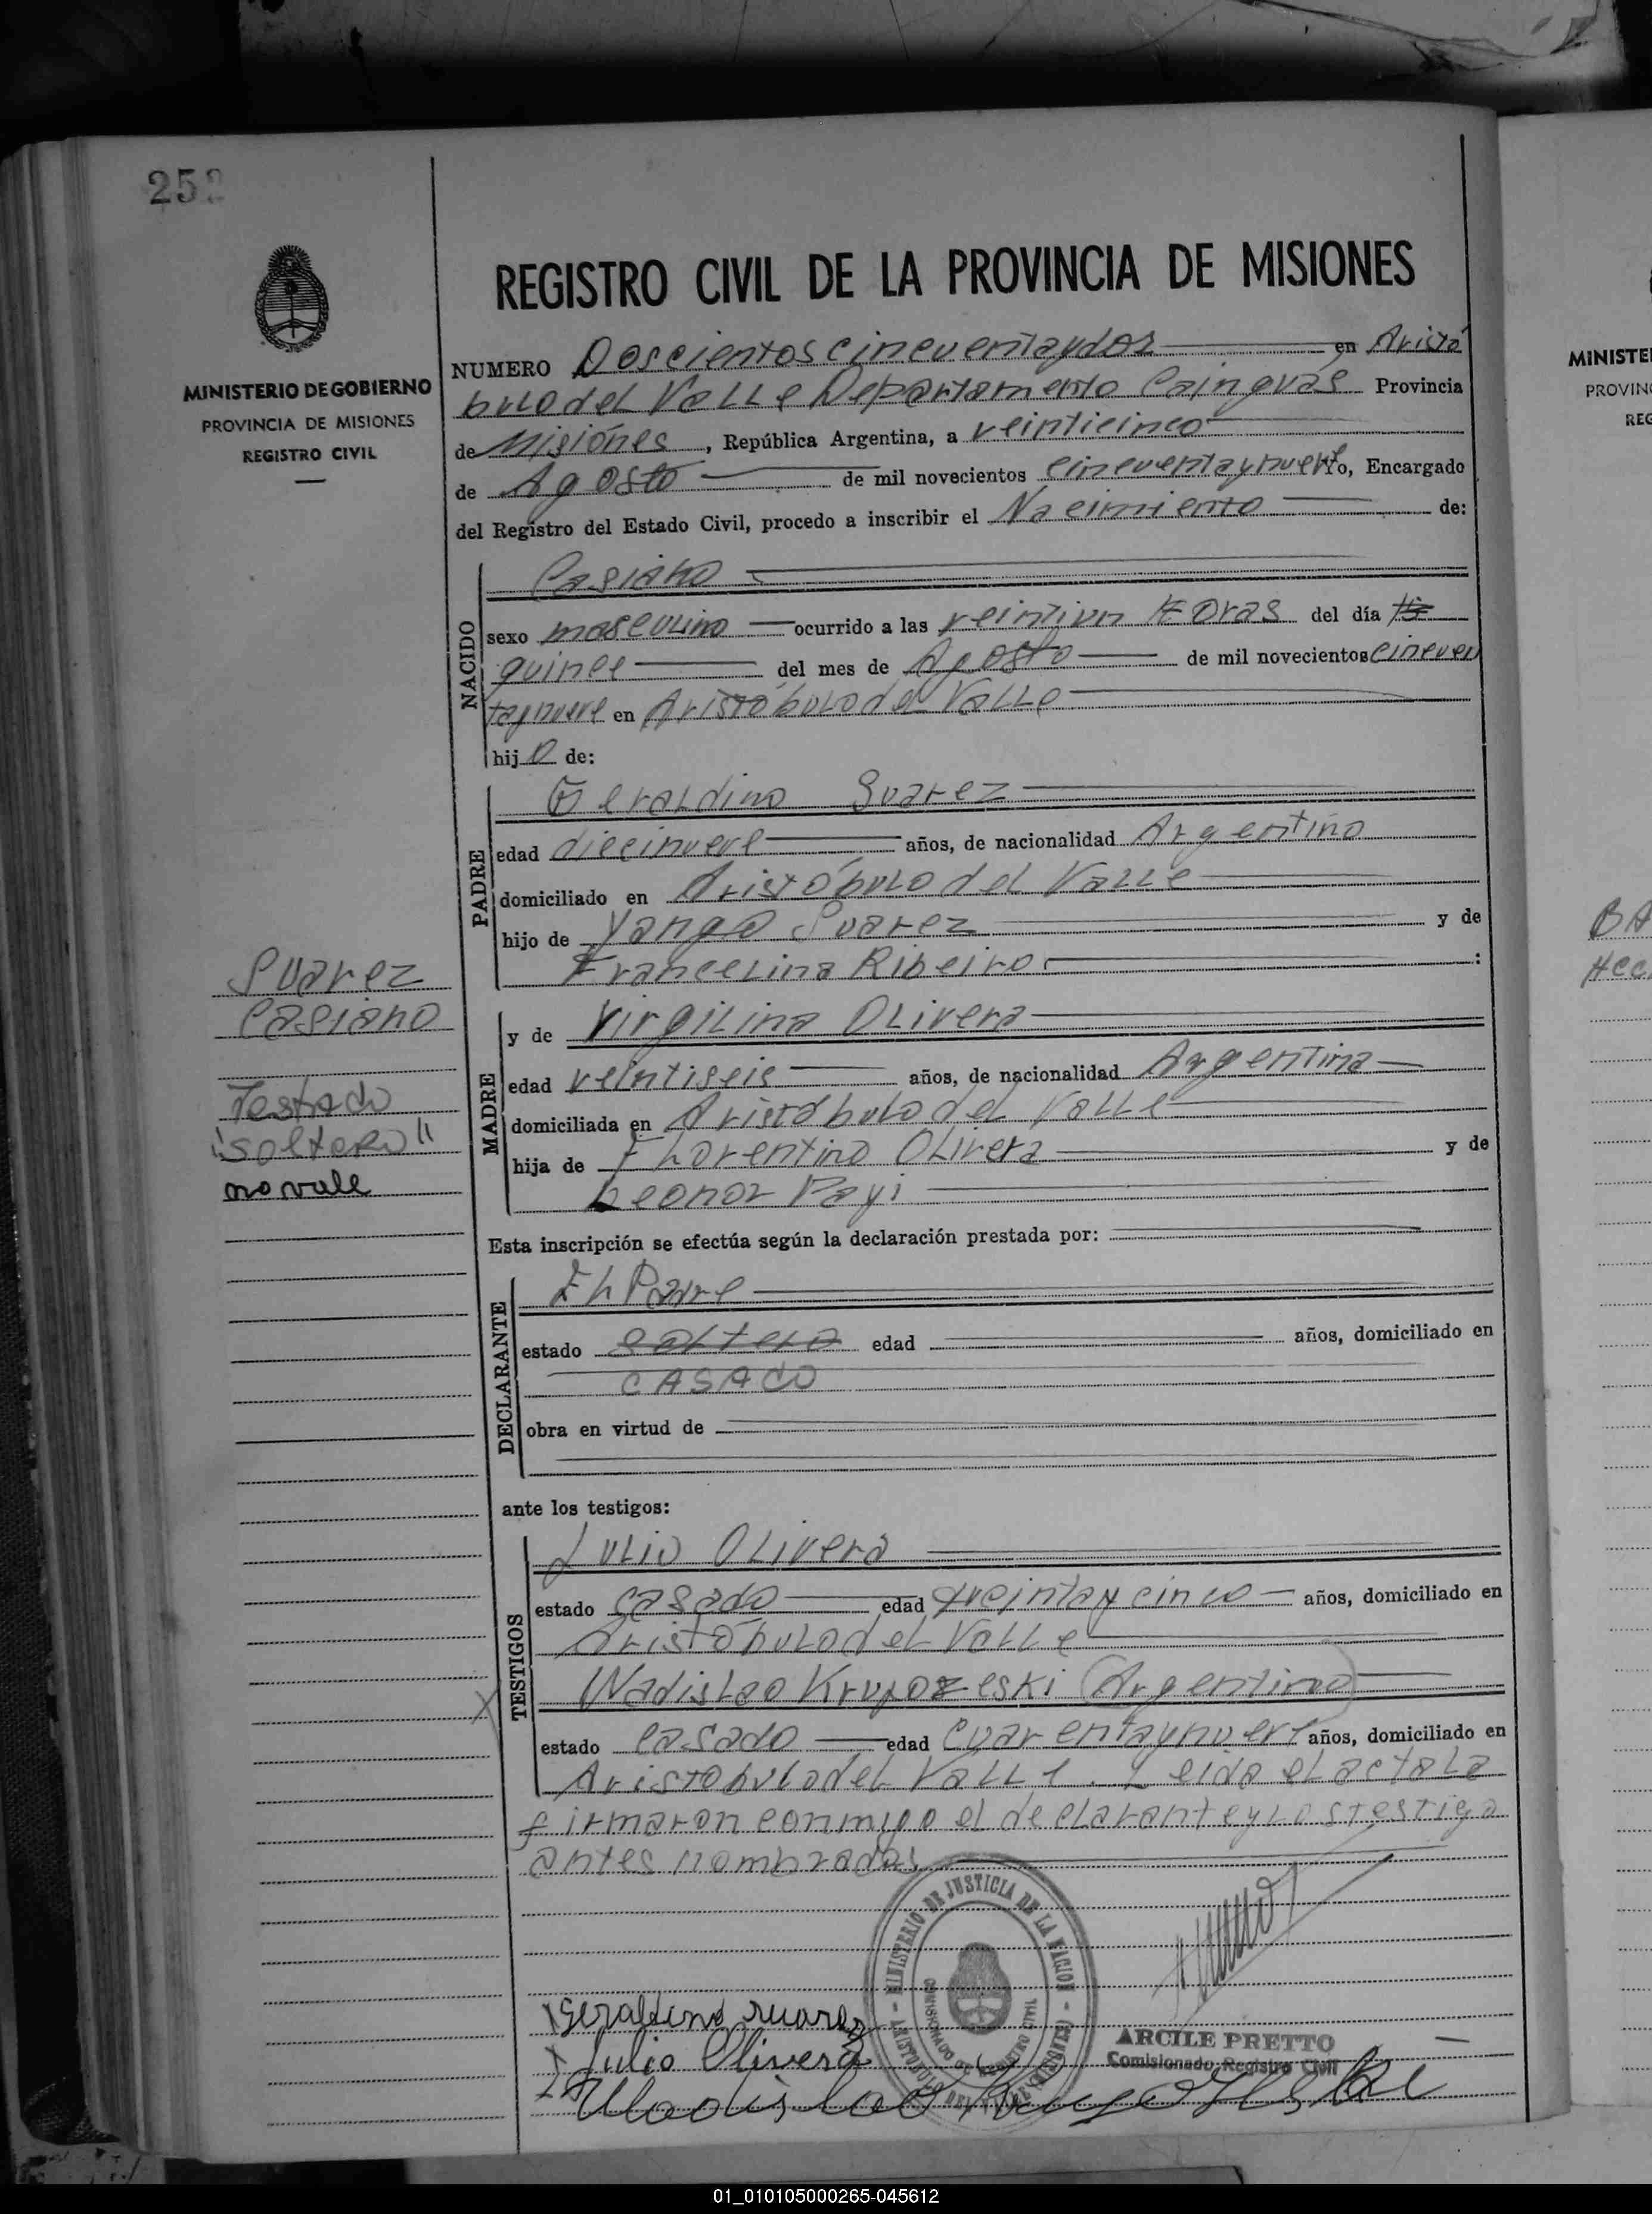 252
MINISTERIO DE GOBIERNO
PROVINCIA DE MISIONES
REGISTRO CIVIL
REGISTRO CIVIL DE LA PROVINCIA DE MISIONES
NUMERO Doscientos cincuentaydos en Aristó
bulo del Valle Departamento Cainguás Provincia
de Misiónes, República Argentina, a veinticinco
de Agosto de mil novecientos cincuentaynueve Yo, Encargado
del Registro del Estado Civil, procedo a inscribir el Nacimiento de:
NACIDO
Casiano
sexo masculino ocurrido a las veintiun Horas del día
quince del mes de Agosto de mil novecientos cincuen
taynueve en Aristóbulo del Valle
hijo de:
PADRE
Geraldino Suarez
edad diecinueve años, de nacionalidad Argentino
domiciliado en Aristóbulo del Valle
hijo de Suarez y de
Francelina Ribeiro :
Suarez
Casiano
Testado
"soltero"
no vale
MADRE
y de Virgilina Olivera
edad veintiseis años, de nacionalidad Argentina
domiciliada en Aristóbulo del Valle
hija de Florentino Olivera y de
Leonor Payi
Esta inscripción se efectúa según la declaración prestada por:
DECLARANTE
El Padre
estado soltero edad años, domiciliado en
CASADO
obra en virtud de
ante los testigos:
TESTIGOS
Julio Olivera
estado casado edad treintaycinco años, domiciliado en
Aristóbulo del Valle
Wadislao Krupozeski (Argentino)
estado casado edad Cuarentaynueve años, domiciliado en
Aristobulo del Valle. Leida el acta la
firmaron conmigo el declarante y los testigo
antes nombrados
MINISTERIO DE JUSTICIA DE LA NACION
COMISIONADO DE REGISTRO CIVIL
Geraldino Suarez
Julio Olivera
ARCILE PRETTO
Comisionado Registro Civil
MINISTE
PROVIN
REG
BA
01_010105000265-045612